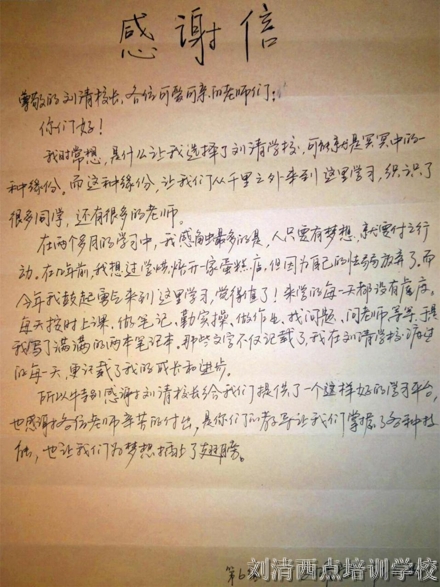 感谢信
尊敬的刘清校长、各位可爱可亲的老师们：
你们好！
我时常想，是什么让我选择了刘清学校，可能就是冥冥中的一
种缘份。而这种缘份，让我们从千里之外来到这里学习，织识了
很多同学，还有很多的老师。
在两个多月的学习中，我感触最多的是，人只要有梦想，就要付之行
动。在几年前，我想过学烘焙开一家蛋糕店，但因为自己的怯弱而放弃了。而
今年我鼓起勇气来到这里学习，觉得值了！来学的每一天都没有虚度，
每天按时上课、做笔记、勤实操、做作业、找问题、问老师等等，
我写了满满的两本笔记本。那些文字不仅记载了，我在刘清学校渡过
的每一天，更记载了我的成长和进步。
所以特别感谢刘清校长给我们提供了一个这样好的学习平台，
也感谢各位老师辛苦的付出，是你们的教导让我们掌握了各种技
能，也让我们为梦想插上了翅膀。
第6
刘清西点培训学校